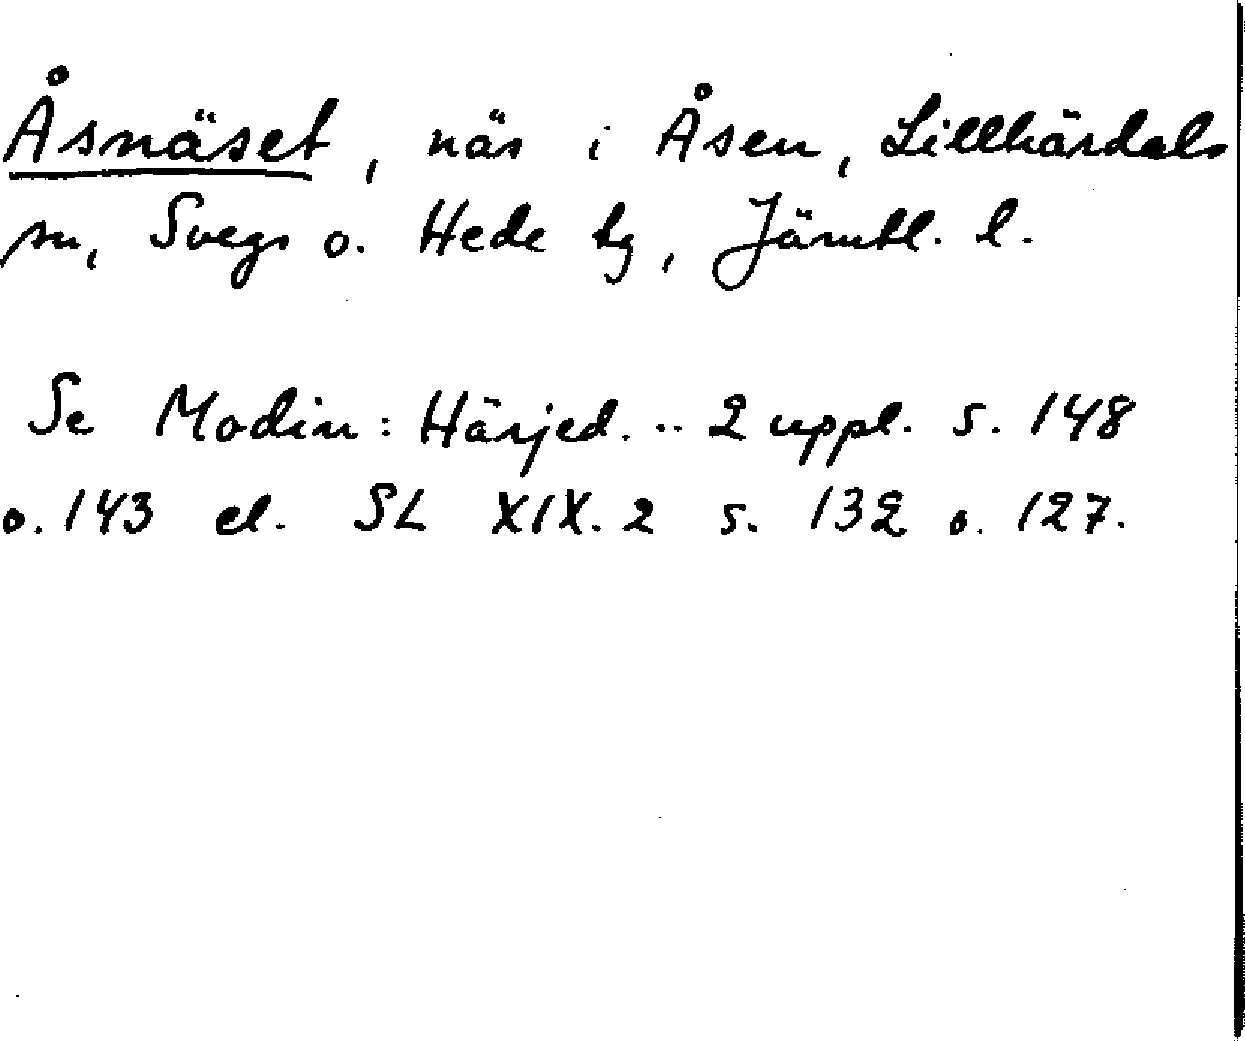 Åsnäset, näs i Åsen, Lillhärdals
sn, Svegs o. Hede tg, Jämtl. l.
Se Modin: Härjed. .. 2 uppl. s. 148
o. 143 el. SL XIX. 2 s. 132 o. 127.